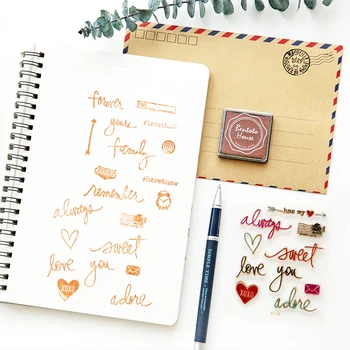 forever
yours
#lovethis
family
#herenow
remember
always
sweet
love you
XOXO
adore
Bentoto
House
has my
always
sweet
love you
XOXO
adore